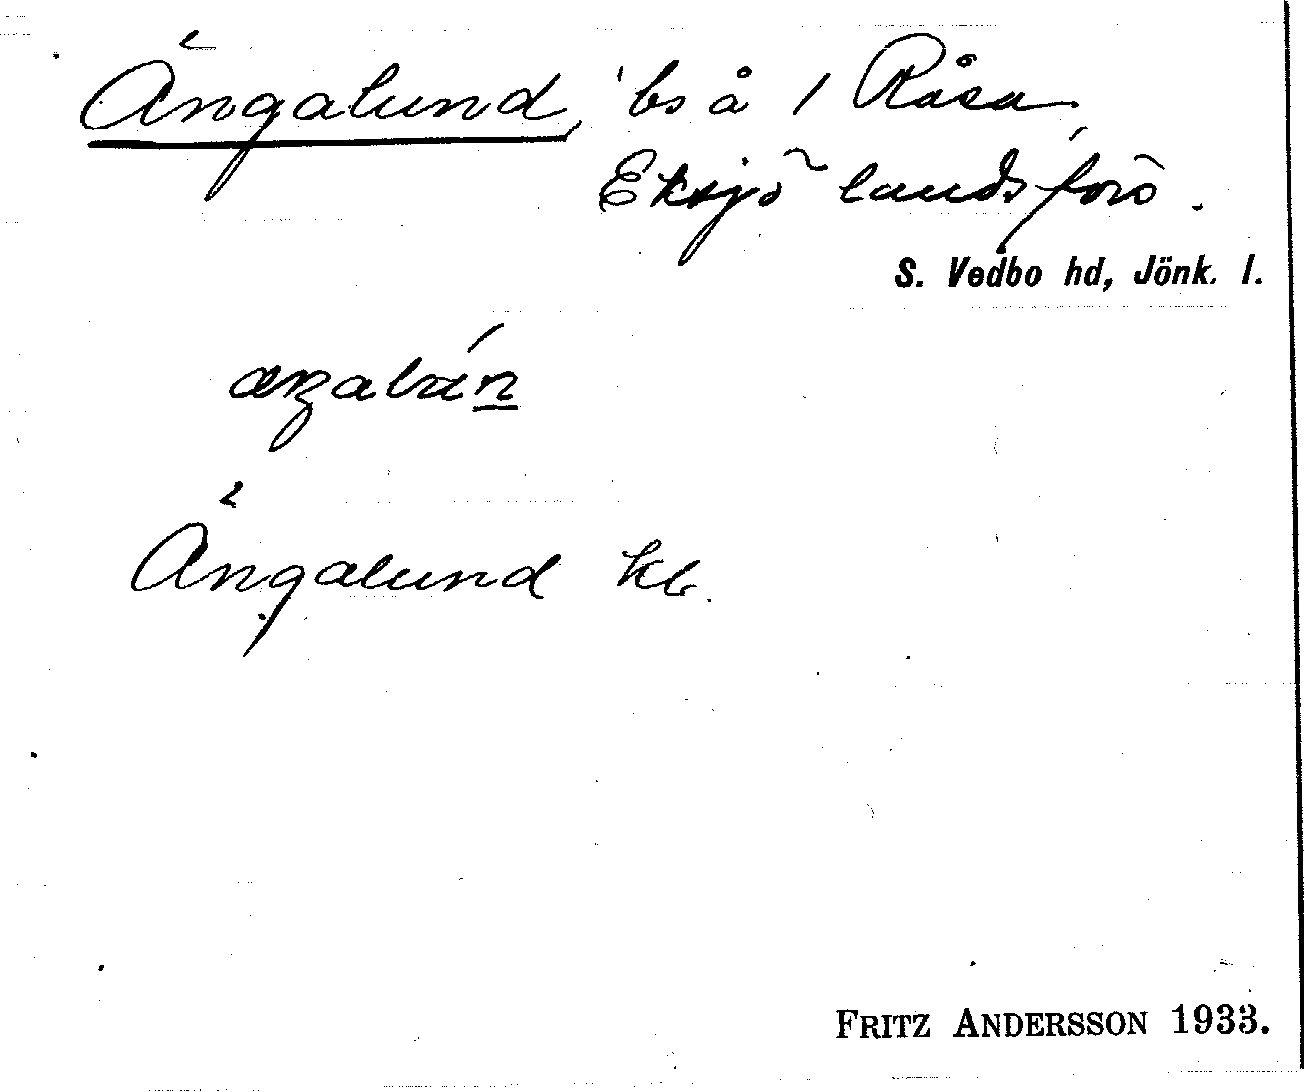 Ängalund, bs å 1 Råsa,
Eksjö landsförs.
S. Vedbo hd, Jönk. l.
æŋalún̲
Ängalund kb.
FRITZ ANDERSSON 1933.